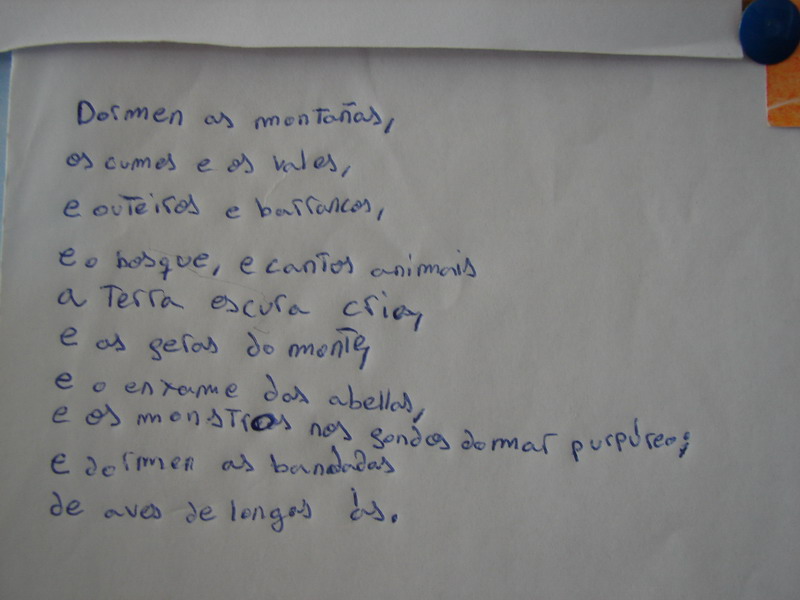 Dormen as montañas,
os cumes e os vales,
e outeiros e barrancos,
e o bosque, e cantos animais
a terra escura cría,
e as feras do monte,
e o enxame das abellas,
e os monstros nos fondos do mar purpúreo;
e dormen as bandadas
de aves de longas ás.